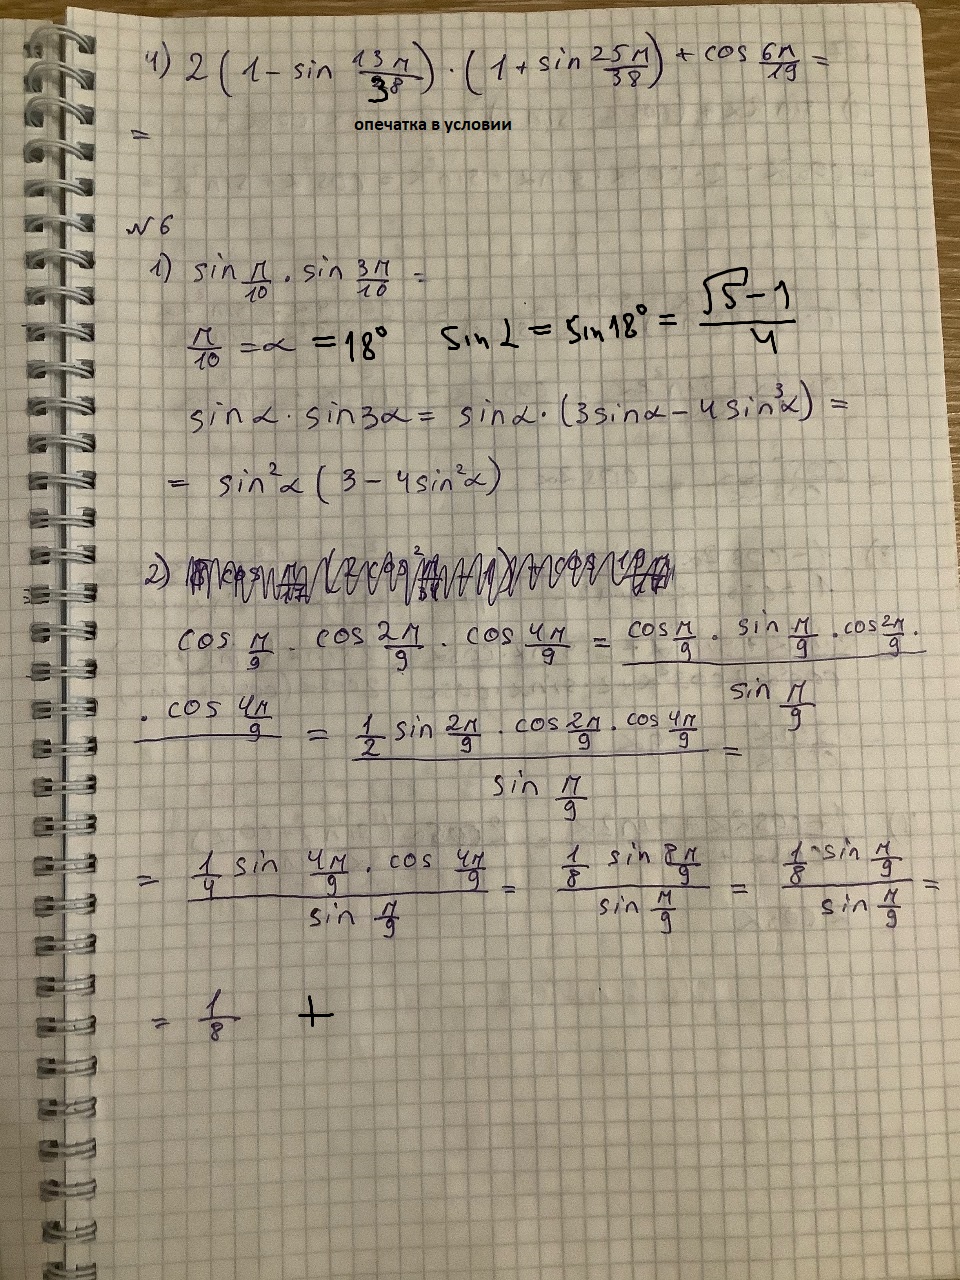 4) 2 (1 - sin 13π/38) · (1 + sin 25π/38) + cos 6π/19 =
опечатка в условии
=
№6
1) sin π/10 · sin 3π/10 =
π/10 = α = 18° sin α = sin 18° = (√5 - 1)/4
sin α · sin 3α = sin α · (3 sin α - 4 sin³α) =
= sin²α (3 - 4 sin²α)
2)
cos π/9 · cos 2π/9 · cos 4π/9 = cos π/9 · sin π/9 · cos 2π/9 · / sin π/9
· cos 4π/9 = 1/2 sin 2π/9 · cos 2π/9 · cos 4π/9 / sin π/9 =
= 1/4 sin 4π/9 · cos 4π/9 / sin π/9 = 1/8 sin 8π/9 / sin π/9 = 1/8 · sin π/9 / sin π/9 =
= 1/8 +